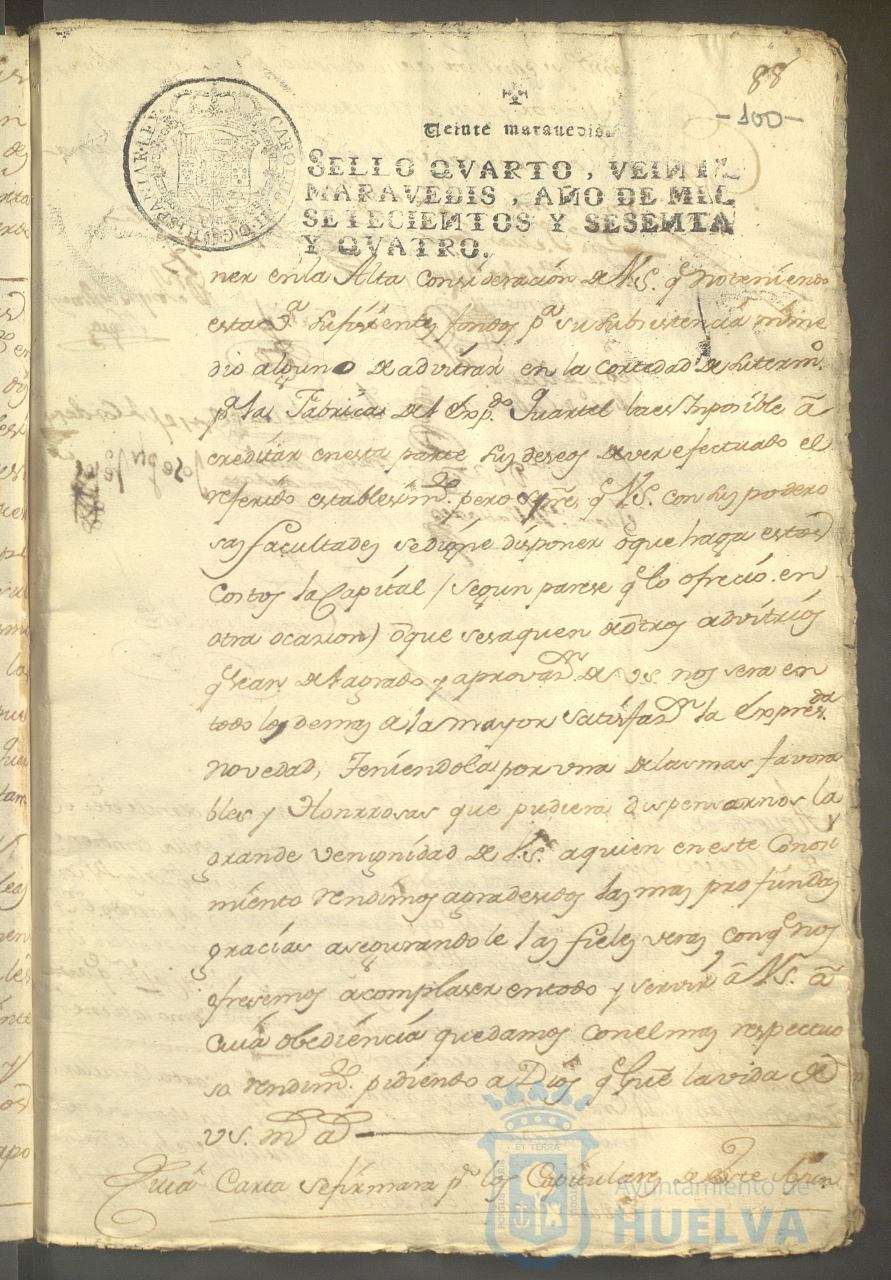 88
-100-
Veinte maravedis.
SELLO QVARTO, VEINTE
MARAVEDIS, AÑO DE MIL
SETECIENTOS Y SESENTA
Y QVATRO.
CAROLUS III D G HISPANIAR REX
ner en la Alta Consideración de V.S. q.e no teniendo
esta V.a sufisientes fondos p.a su subsistencia ni me
dio alguno de advitrar en la cortedad de su term.o
p.a las Fabricas del Exp.do Quartel la es Imposible a
creditar en esta parte sus deseos de ver efectuado el
referido establesim.to pero q.e V.S. con sus podero
sas facultades se digne disponer o que haga estos
Costos la Capital / segun parese q.e lo ofreció en
otra ocasion) o que se saquen de otros advitrios
q.e sean del agrado y aprovaz.n de V.S. nos sera en
todo lo demas de la mayor satisfaz.n la Expres.da
novedad, Teniendola por una de las mas favora
bles y Honrrosas que pudiera dispensarnos la
grande venignidad de V.S. a quien en este Conosi
miento rendimos agradesidos las mas profundas
gracias asegurandole las fieles veras con q.e nos
ofresemos a complaser en todo y servir a V.S. a
cuia obediencia quedamos con el mas respectuo
so rendim.to pidiendo a Dios q.e gue la vida de
V.S. m.s a.s
Cuia Carta se firmara p.r los Capitulares de Este Ayun
Ayuntamiento de
HUELVA